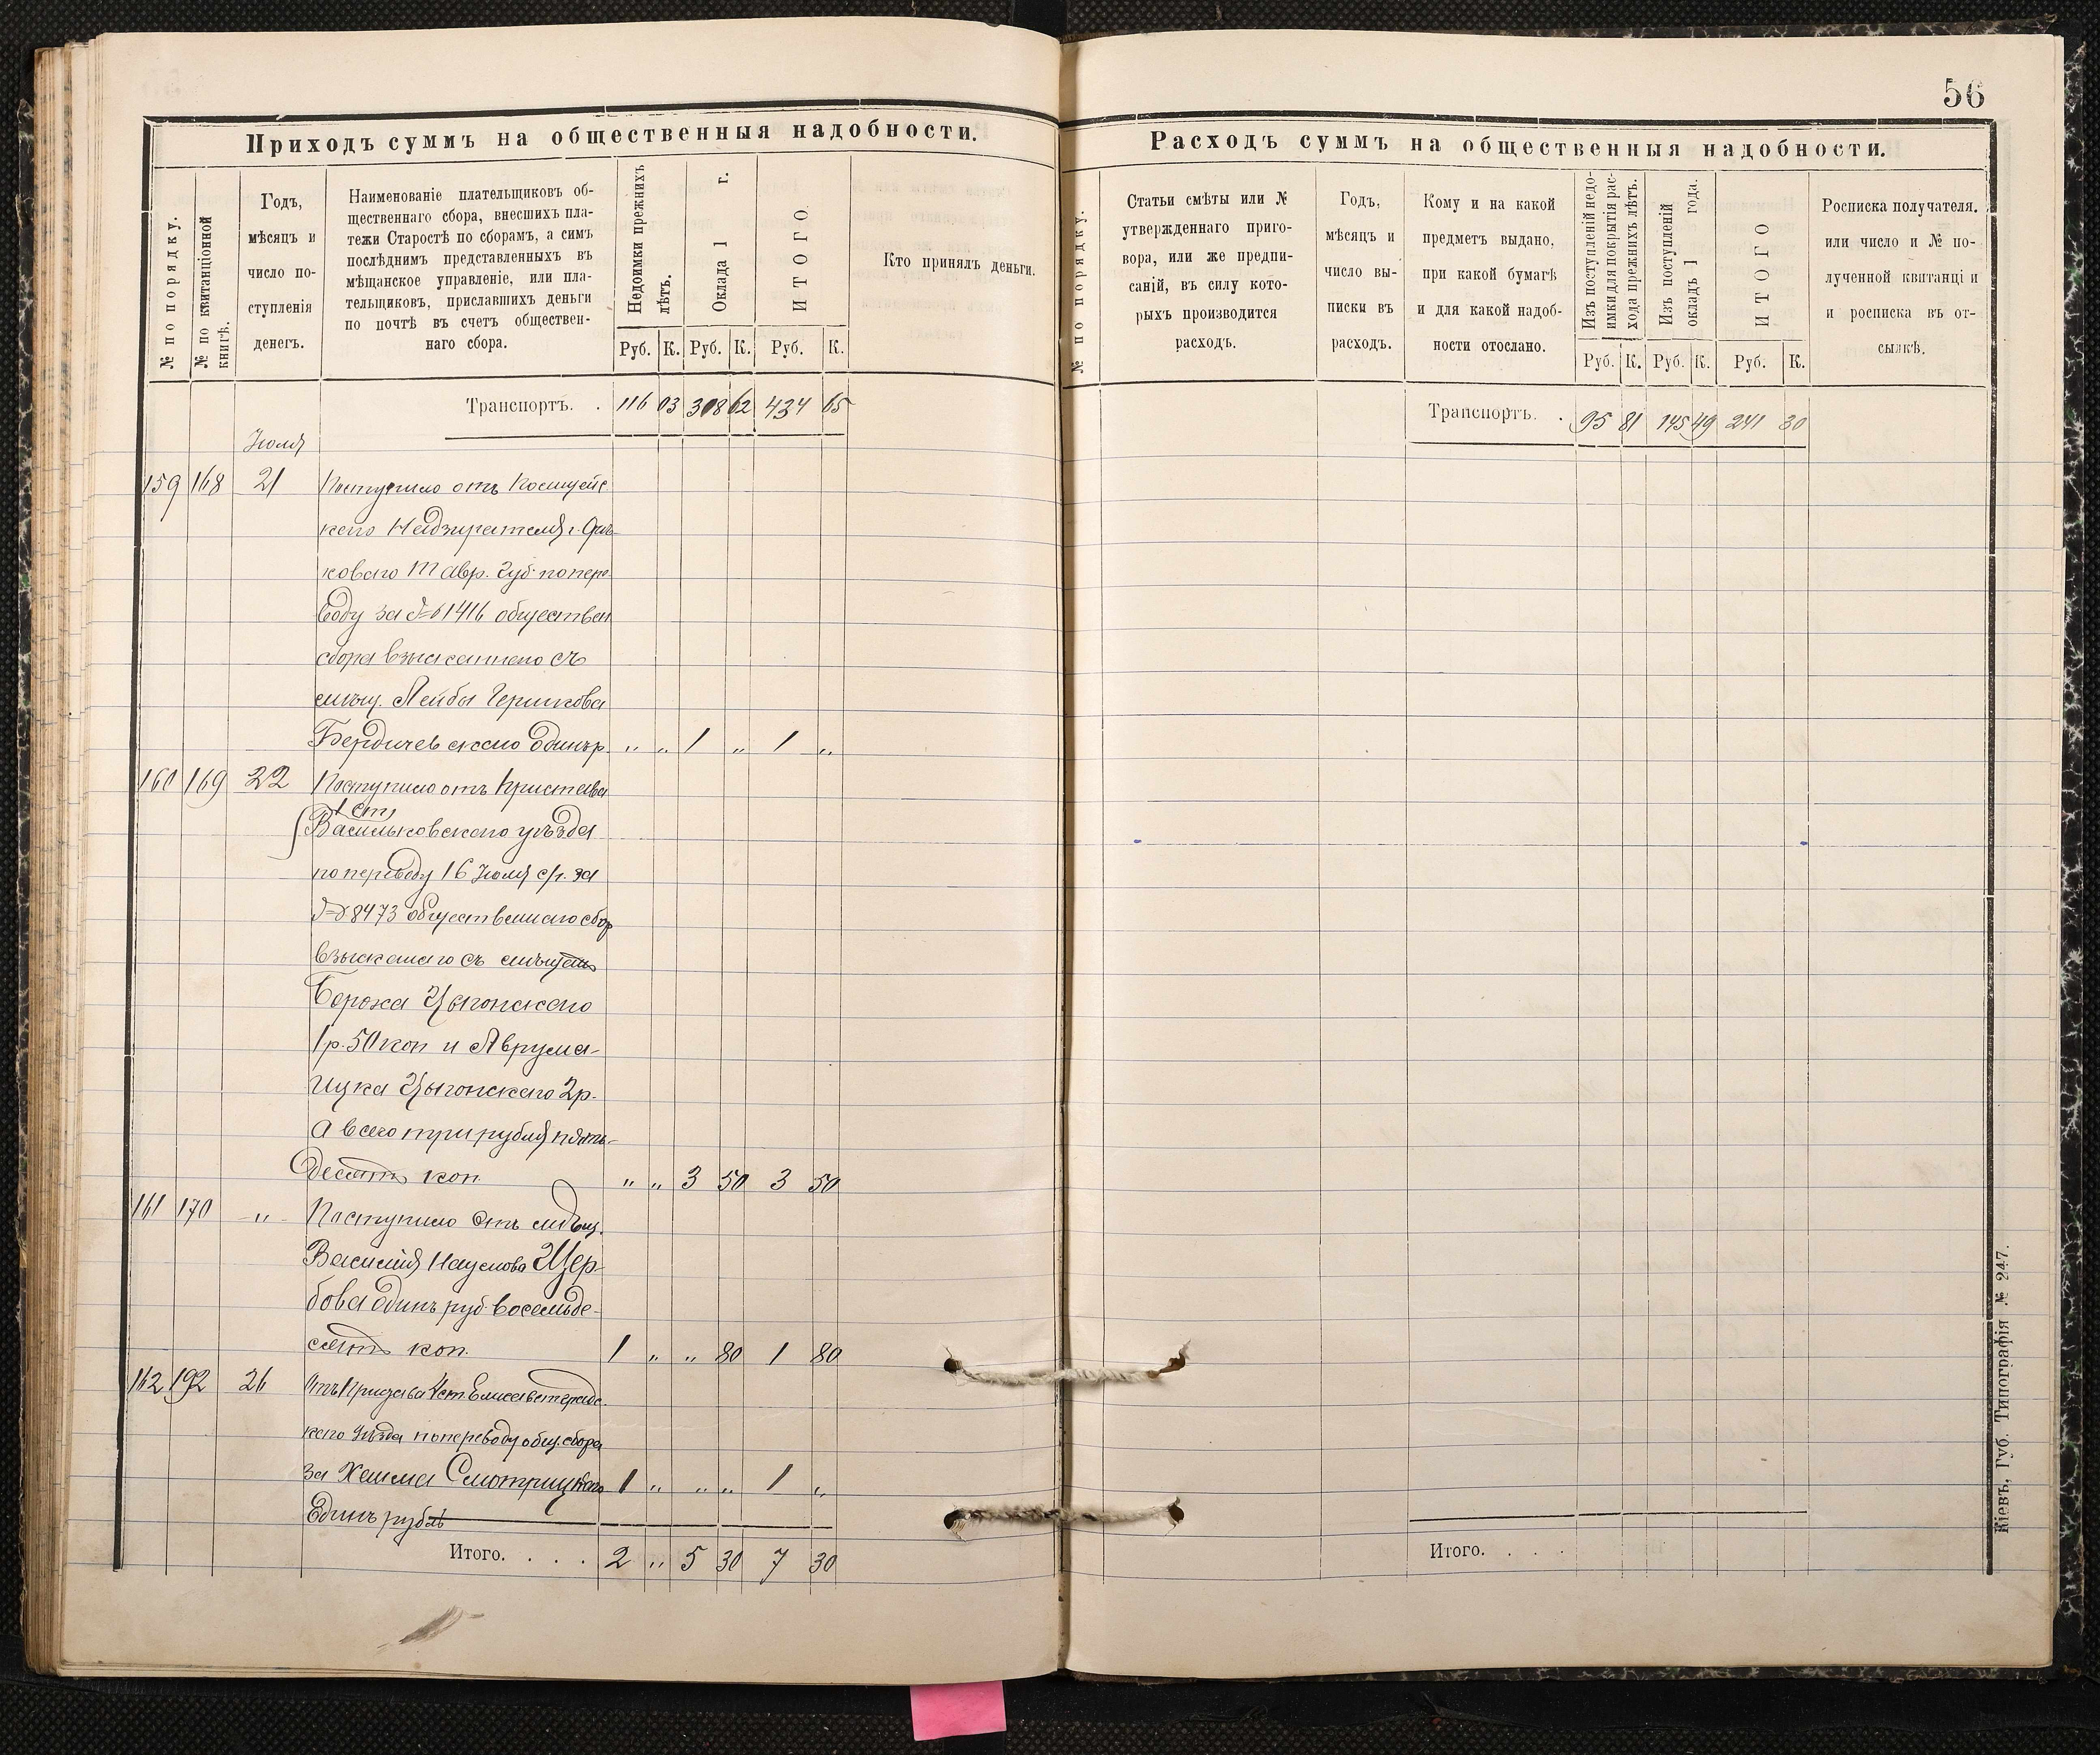 Приходъ суммъ на общественныя надобности.
№ по порядку.
№ по квитанціонной книгѣ.
Годъ,
мѣсяцъ и
число по-
ступленія
денегъ.
Наименованіе плательщиковъ об-
щественнаго сбора, внесшихъ пла-
тежи Старостѣ по сборамъ, а симъ
послѣднимъ представленныхъ въ
мѣщанское управленіе, или пла-
тельщиковъ, приславшихъ деньги
по почтѣ въ счетъ обществен-
наго сбора.
Недоимки прежнихъ лѣтъ.
Оклада 1 г.
ИТОГО.
Кто принялъ деньги.
Руб. К. Руб. К. Руб. К.
Транспортъ. . 116 03 308 62 434 65
Іюля
159 168 21 Поступило отъ Полицейс
каго Надзирателя г. Орѣ-
ховаго Тавр. Губ. по пере-
воду за № 1416 обществен
сбора взысканнаго съ
мѣщ. Лейбы Гершкова
Бердичевскаго одинъ р. „ „ 1 „ 1 „
160 169 22 Поступило отъ Пристава
1 ст
Васильковскаго уѣзда
по переводу 16 Іюля с/г. за
№ 8473 общественнаго сбор
взысканаго съ мѣщанъ
Бороха Цыгонскаго
1 р. 50 коп и Аврума-
Ицка Цыгонскаго 2 р.
А всего три рубля пять-
десятъ коп. „ „ 3 50 3 50
161 170 „ Поступило отъ мѣщ.
Василія Наумова Щер-
бова одинъ руб восемьде-
сятъ коп. 1 „ „ 80 1 80
162 192 26 Отъ Пристава 4 ст. Елисаветградс
каго Уѣзда по переводу общ. сбора
за Хаима Смотрицкаго 1 „ „ „ 1 „
Единъ рубль
Итого. . . . 2 „ 5 30 7 30
56
Расходъ суммъ на общественныя надобности.
№ по порядку.
Статьи смѣты или №
утвержденнаго приго-
вора, или же предпи-
саній, въ силу кото-
рыхъ производится
расходъ.
Годъ,
мѣсяцъ и
число вы-
писки въ
расходъ.
Кому и на какой
предметъ выдано,
при какой бумагѣ
и для какой надоб-
ности отослано.
Изъ поступленій недо-
имки для покрытія рас-
хода прежнихъ лѣтъ.
Изъ поступленій
окладъ 1 года.
ИТОГО
Росписка получателя.
или число и № по-
лученной квитанці и
и росписка въ от-
сылкѣ.
Руб. К. Руб. К. Руб. К.
Транспортъ. . 95 81 145 49 241 30
Итого. . . .
Кіевъ, Губ. Типографія № 247.